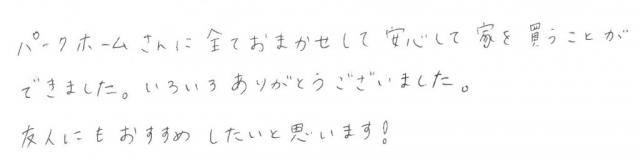 パークホームさんに全ておまかせして安心して家を買うことが
できました。いろいろありがとうございました。
友人にもおすすめしたいと思います!